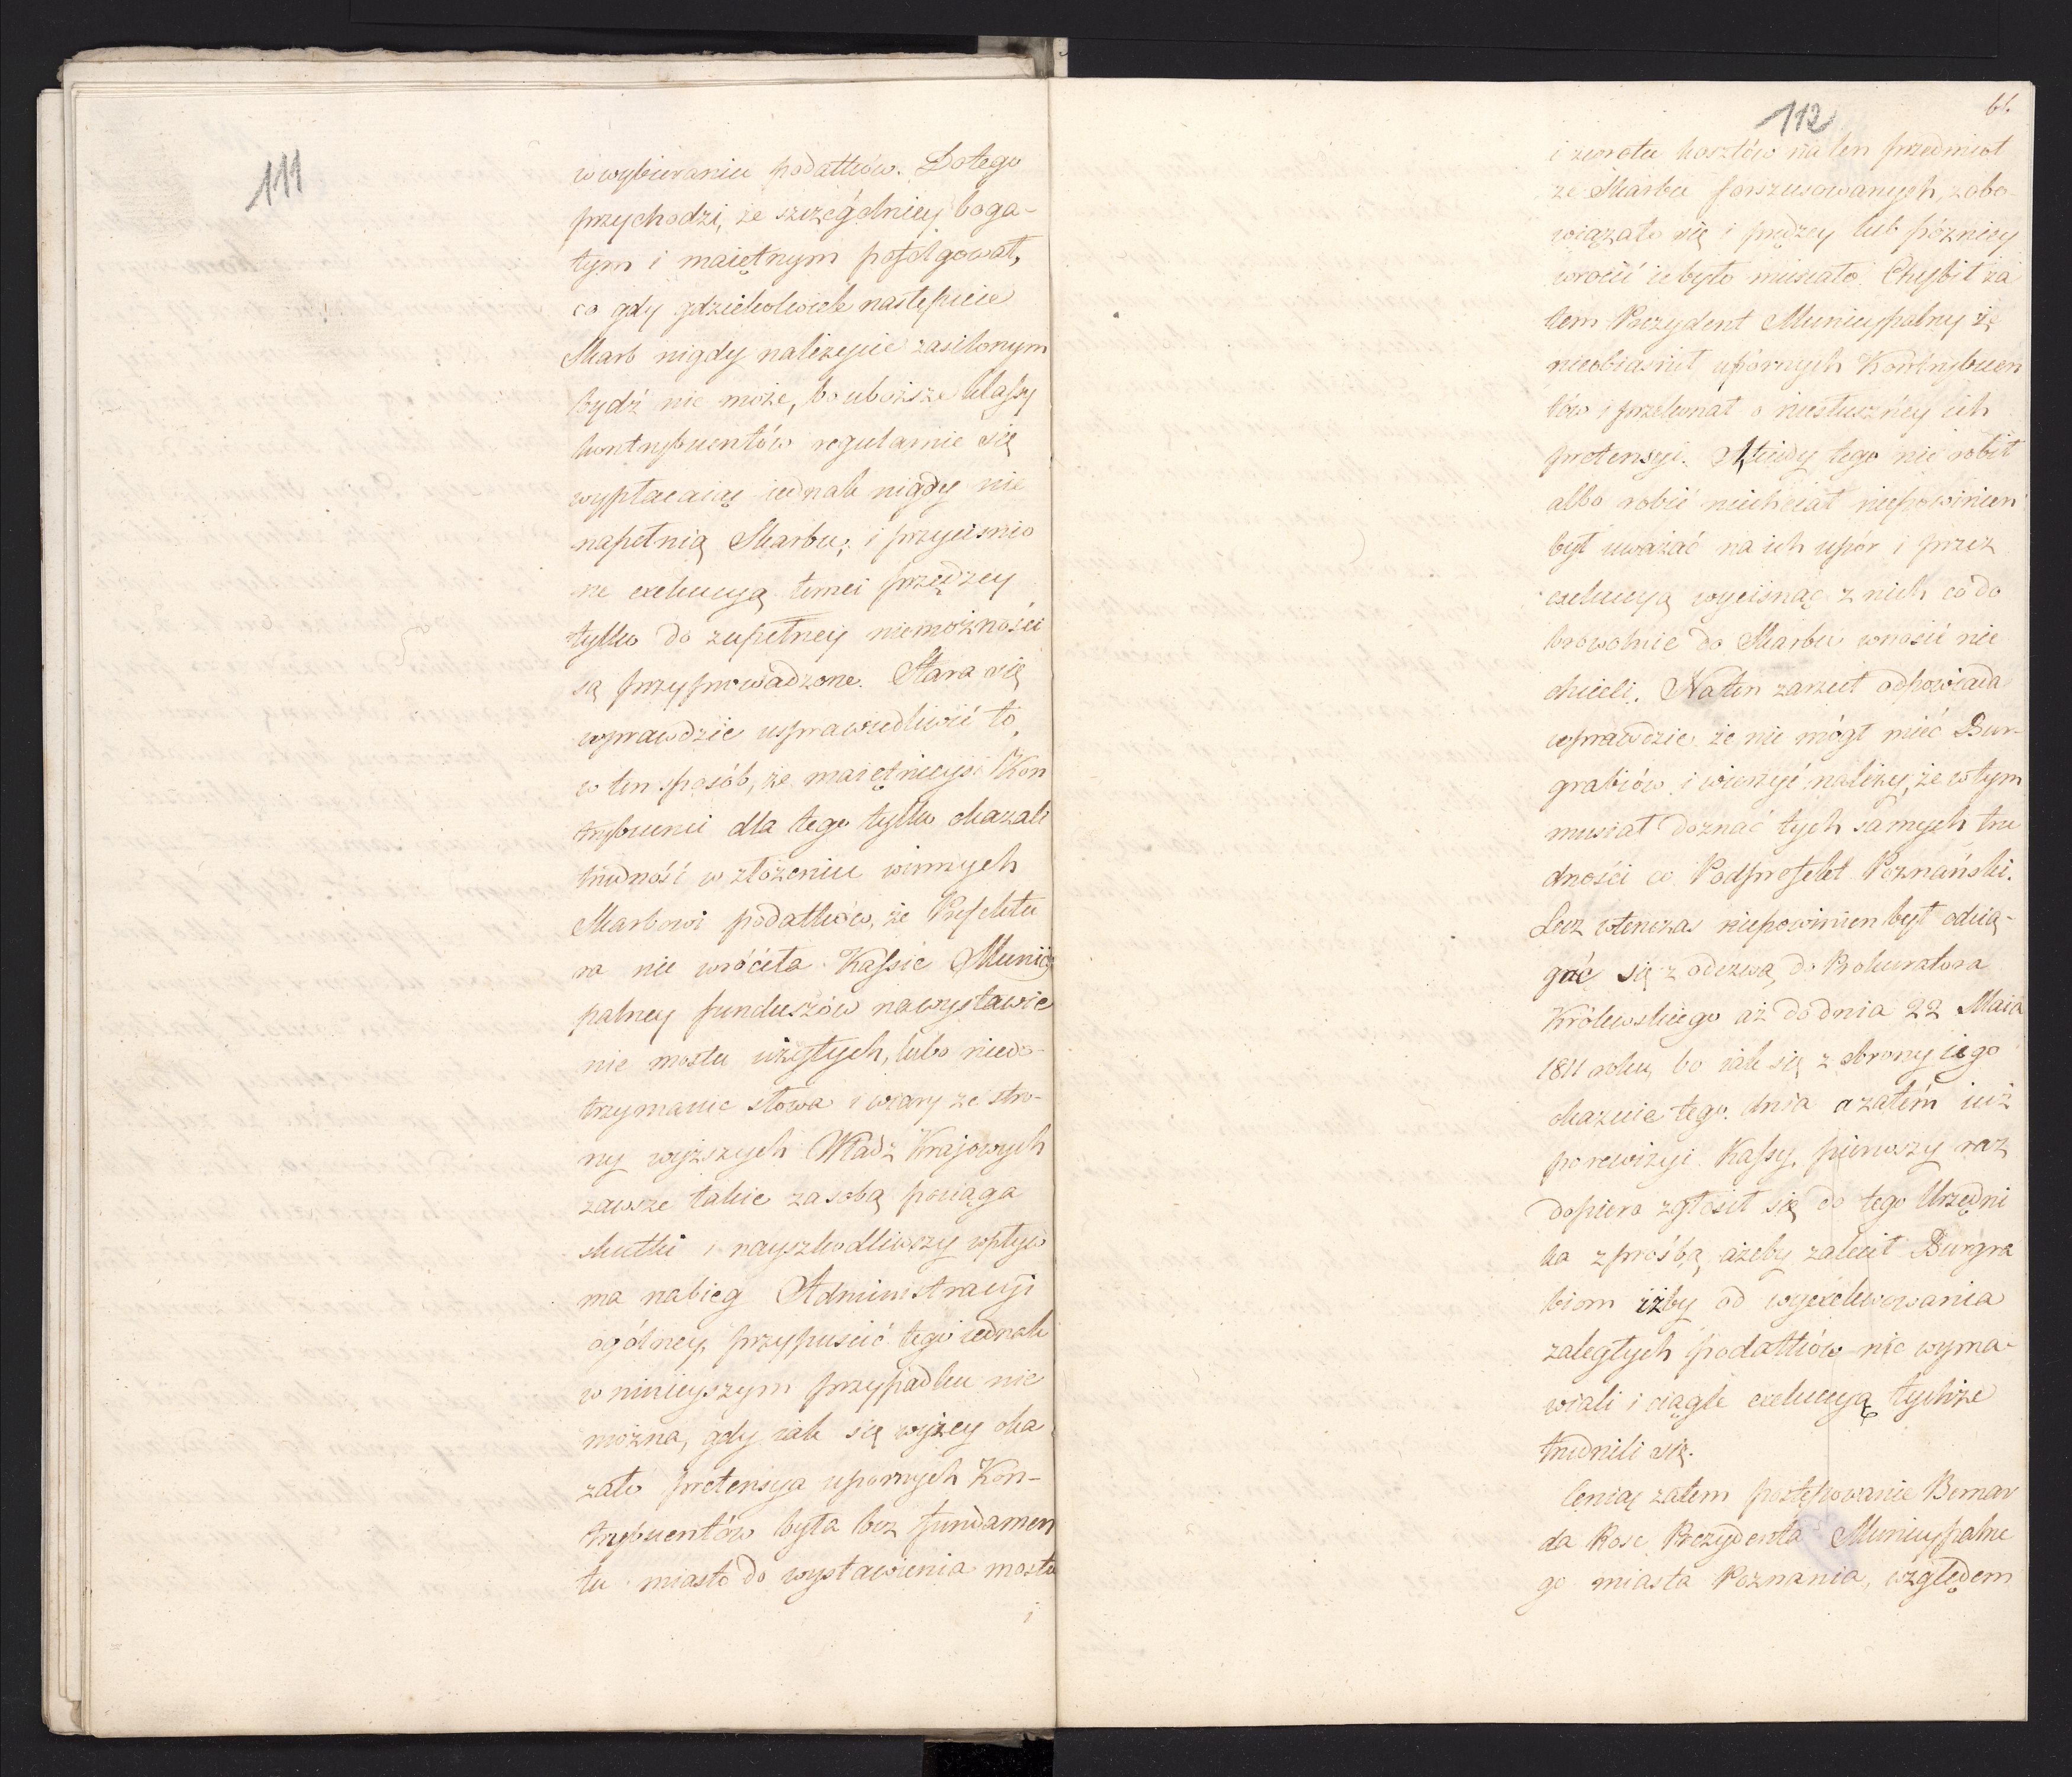 111
w wybieraniu podatków. Dotego
przychodzi, że szczególniey boga-
tym i maiętnym pofolgował,
co gdy gdziekolwiek nastąpiuie
Skarb nigdy należycie zasilonym
bydź nie może, bo uboższe klassy
kontrybuentów regularnie się
wypłacaiąc iednak nigdy nie
napełnią Skarbu; i przyciśnio
ne exekucyą temci prędzey
tylko do zupełney niemożności
są przyprowadzone. Stara się
wprawdzie usprawiedliwić to
w ten sposób, że maiętnieysi Kon
trybuenci dla tego tylko okazali
trudność w złożeniu winnych
Skarbowi podatków, że Prefektu
ra nie wróciła Kassie Municy
palney funduszów na wystawie
nie mostu użytych, lubo niedo-
trzymanie słowa i wiary ze stro-
ny wyższych Władz Krajowych
zawsze takie za sobą pociąga
skutki i nayszkodliwszy wpływ
ma na bieg Administracyi
ogólney, przypuścić tego iednak
w ninieyszym przypadku nie
można, gdy iak się wyżey oka
zało pretensya upornych Kon-
trybuentów była bez fundamen
tu miasto do wystawienia mostu
i
112
61.
i zwrotu kosztów na ten przedmiot
ze Skarbu forszusowanych, zobo-
wiązało się i prędzey lub późniey
wrócić ie było musiało. Chybił za
tem Prezydent Municypalny że
nieobiaśnił upórnych Kontrybuen
tów i przekonał o niesłuszney ich
pretensyi. A kiedy tego nie robił
albo robić niechciał niepowinien
był uważać na ich upór i przez
exekucyą wycisnąć z nich co do
browolnie do Skarbu wnosić nie
chcieli. Na ten zarzut odpowiada
wprawdzie że nie mógł mieć Bur-
grabiów i wierzyć należy, że w tym
musiał doznać tych samych tru
dności co Podprefekt Poznański.
Lecz wtenczas niepowinien był ociią-
gać się z odezwą do Prokuratora
Królewskiego aż do dnia 22 Maia
1811 roku, bo iak się z obrony iego
okazuie tego dnia a zatém iuż
po rewizyi Kassy, pierwszy raz
dopiero zgłosił się do tego Urzędni
ka z prośbą ażeby zalecił Burgra
biom iżby od wyexekwowania
zaległych podatków nie wyma-
wiali i ciągle exekucyą tychże
trudnili się.
Ceniąc zatem postępowanie Bernar
da Rose Prezydenta Municypalne
go miasta Poznania, względem